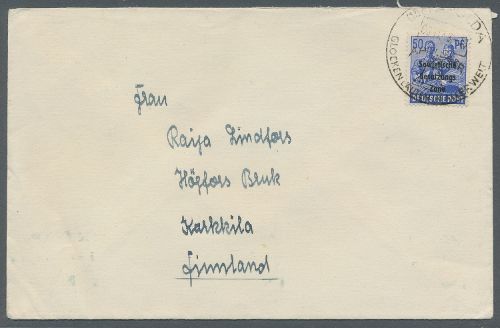 50 PF
Sowjetische
Besatzungs
Zone
DEUTSCHE POST
GLOCKEN
WELT
Frau
Raija Lindfors
Höffors Bruk
Karkkila
Finnland